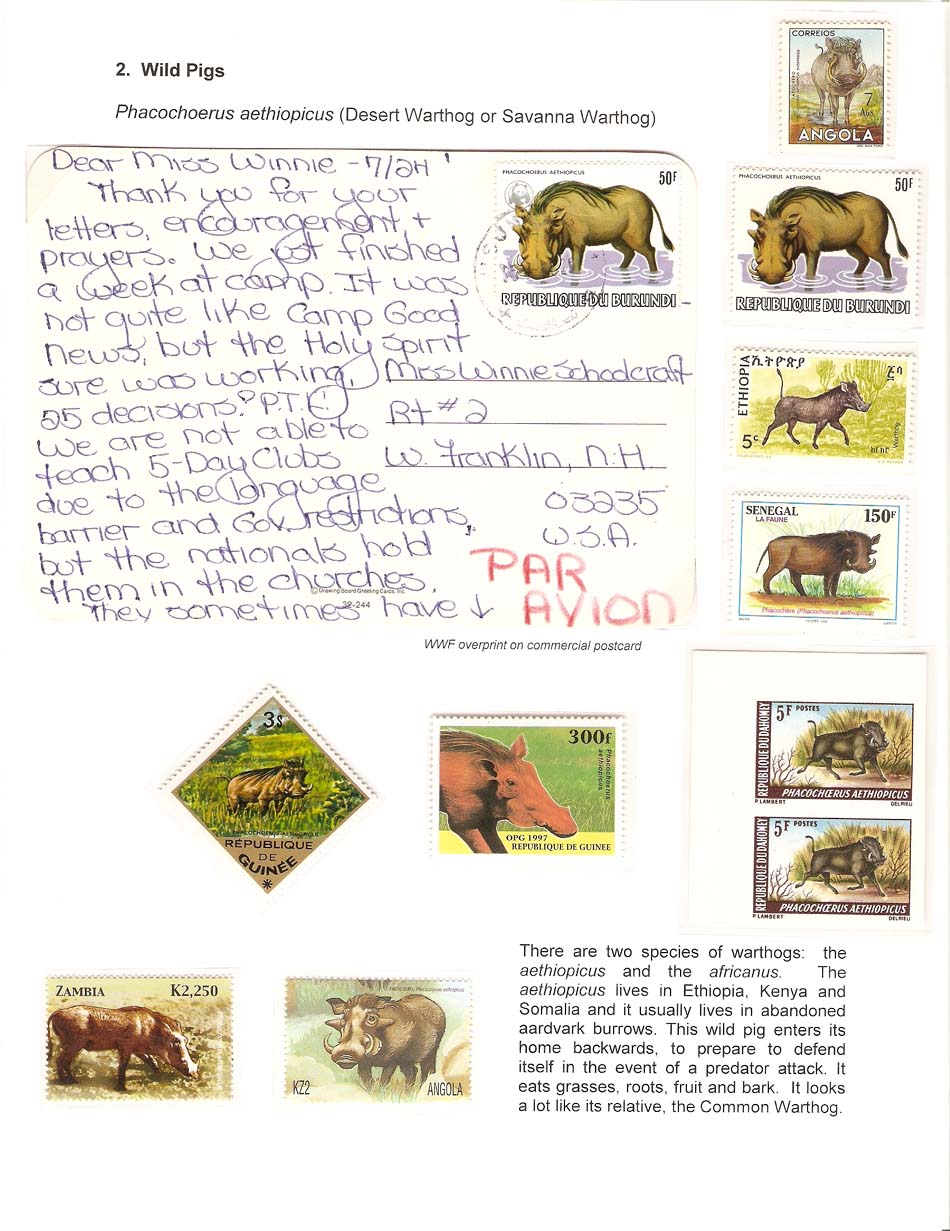 2. Wild Pigs
Phacochoerus aethiopicus (Desert Warthog or Savanna Warthog)
CORREIOS
7
AGS
ANGOLA
Dear Miss Winnie - 7/24
Thank you for your
letters, encouragement, +
prayers. We just finished
a week at camp. It was
not quite like Camp Good
News, but the Holy Spirit
sure was working,
25 decisions! P.T.L!
We are not able to
teach 5-Day Clubs
due to the language
barrier and Gov. restrictions,
but the nationals hold
them in the churches.
They sometimes have ↓
© Drawing Board Greeting Cards, Inc.
32-244
PHACOCHOERUS AETHIOPICUS
50F
REPUBLIQUE DU BURUNDI
Miss Winnie Schoolcraft
Rt # 2
W. Franklin, N.H.
03235
U.S.A.
PAR
AVION
PHACOCHOERUS AETHIOPICUS
50F
REPUBLIQUE DU BURUNDI
ETHIOPIA
ኢትዮጵያ
5c
Warthog
SENEGAL
LA FAUNE
150F
Phacochère (Phacochoerus aethiopicus)
WWF overprint on commercial postcard
3s
PHACOCHOERUS AETHIOPICUS
RÉPUBLIQUE
DE
GUINÉE
300f
Phacochoerus
aethiopicus
OPG 1997
REPUBLIQUE DE GUINEE
5F POSTES
REPUBLIQUE DU DAHOMEY
PHACOCHŒRUS AETHIOPICUS
P. LAMBERT
DELRIEU
5F POSTES
REPUBLIQUE DU DAHOMEY
PHACOCHŒRUS AETHIOPICUS
P. LAMBERT
DELRIEU
ZAMBIA
K2,250
FACOCHERO, Phacochoerus aethiopicus
KZ2
ANGOLA
There are two species of warthogs: the
aethiopicus and the africanus. The
aethiopicus lives in Ethiopia, Kenya and
Somalia and it usually lives in abandoned
aardvark burrows. This wild pig enters its
home backwards, to prepare to defend
itself in the event of a predator attack. It
eats grasses, roots, fruit and bark. It looks
a lot like its relative, the Common Warthog.